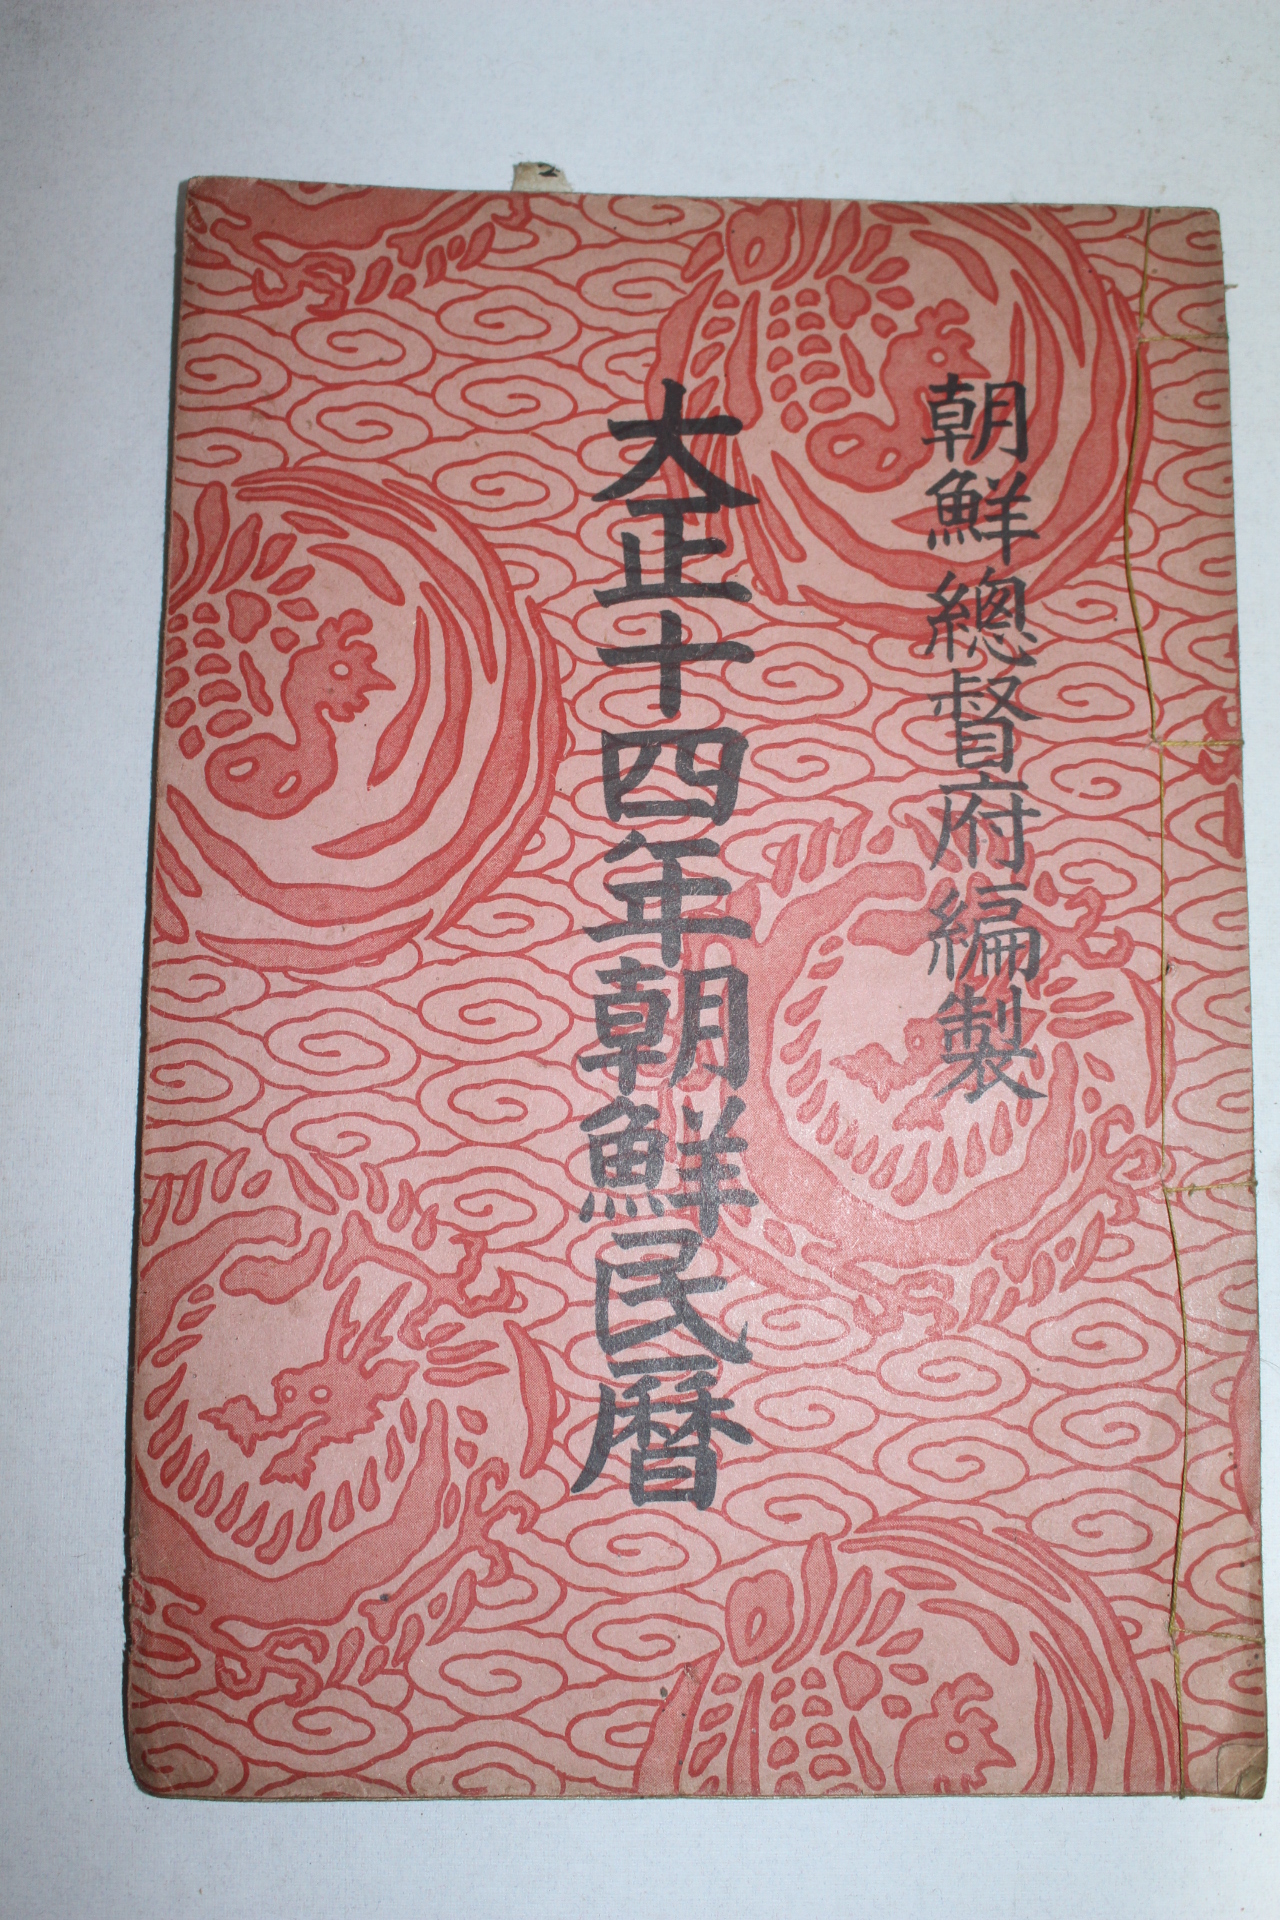 朝鮮總督府編製
大正十四年朝鮮民曆
2